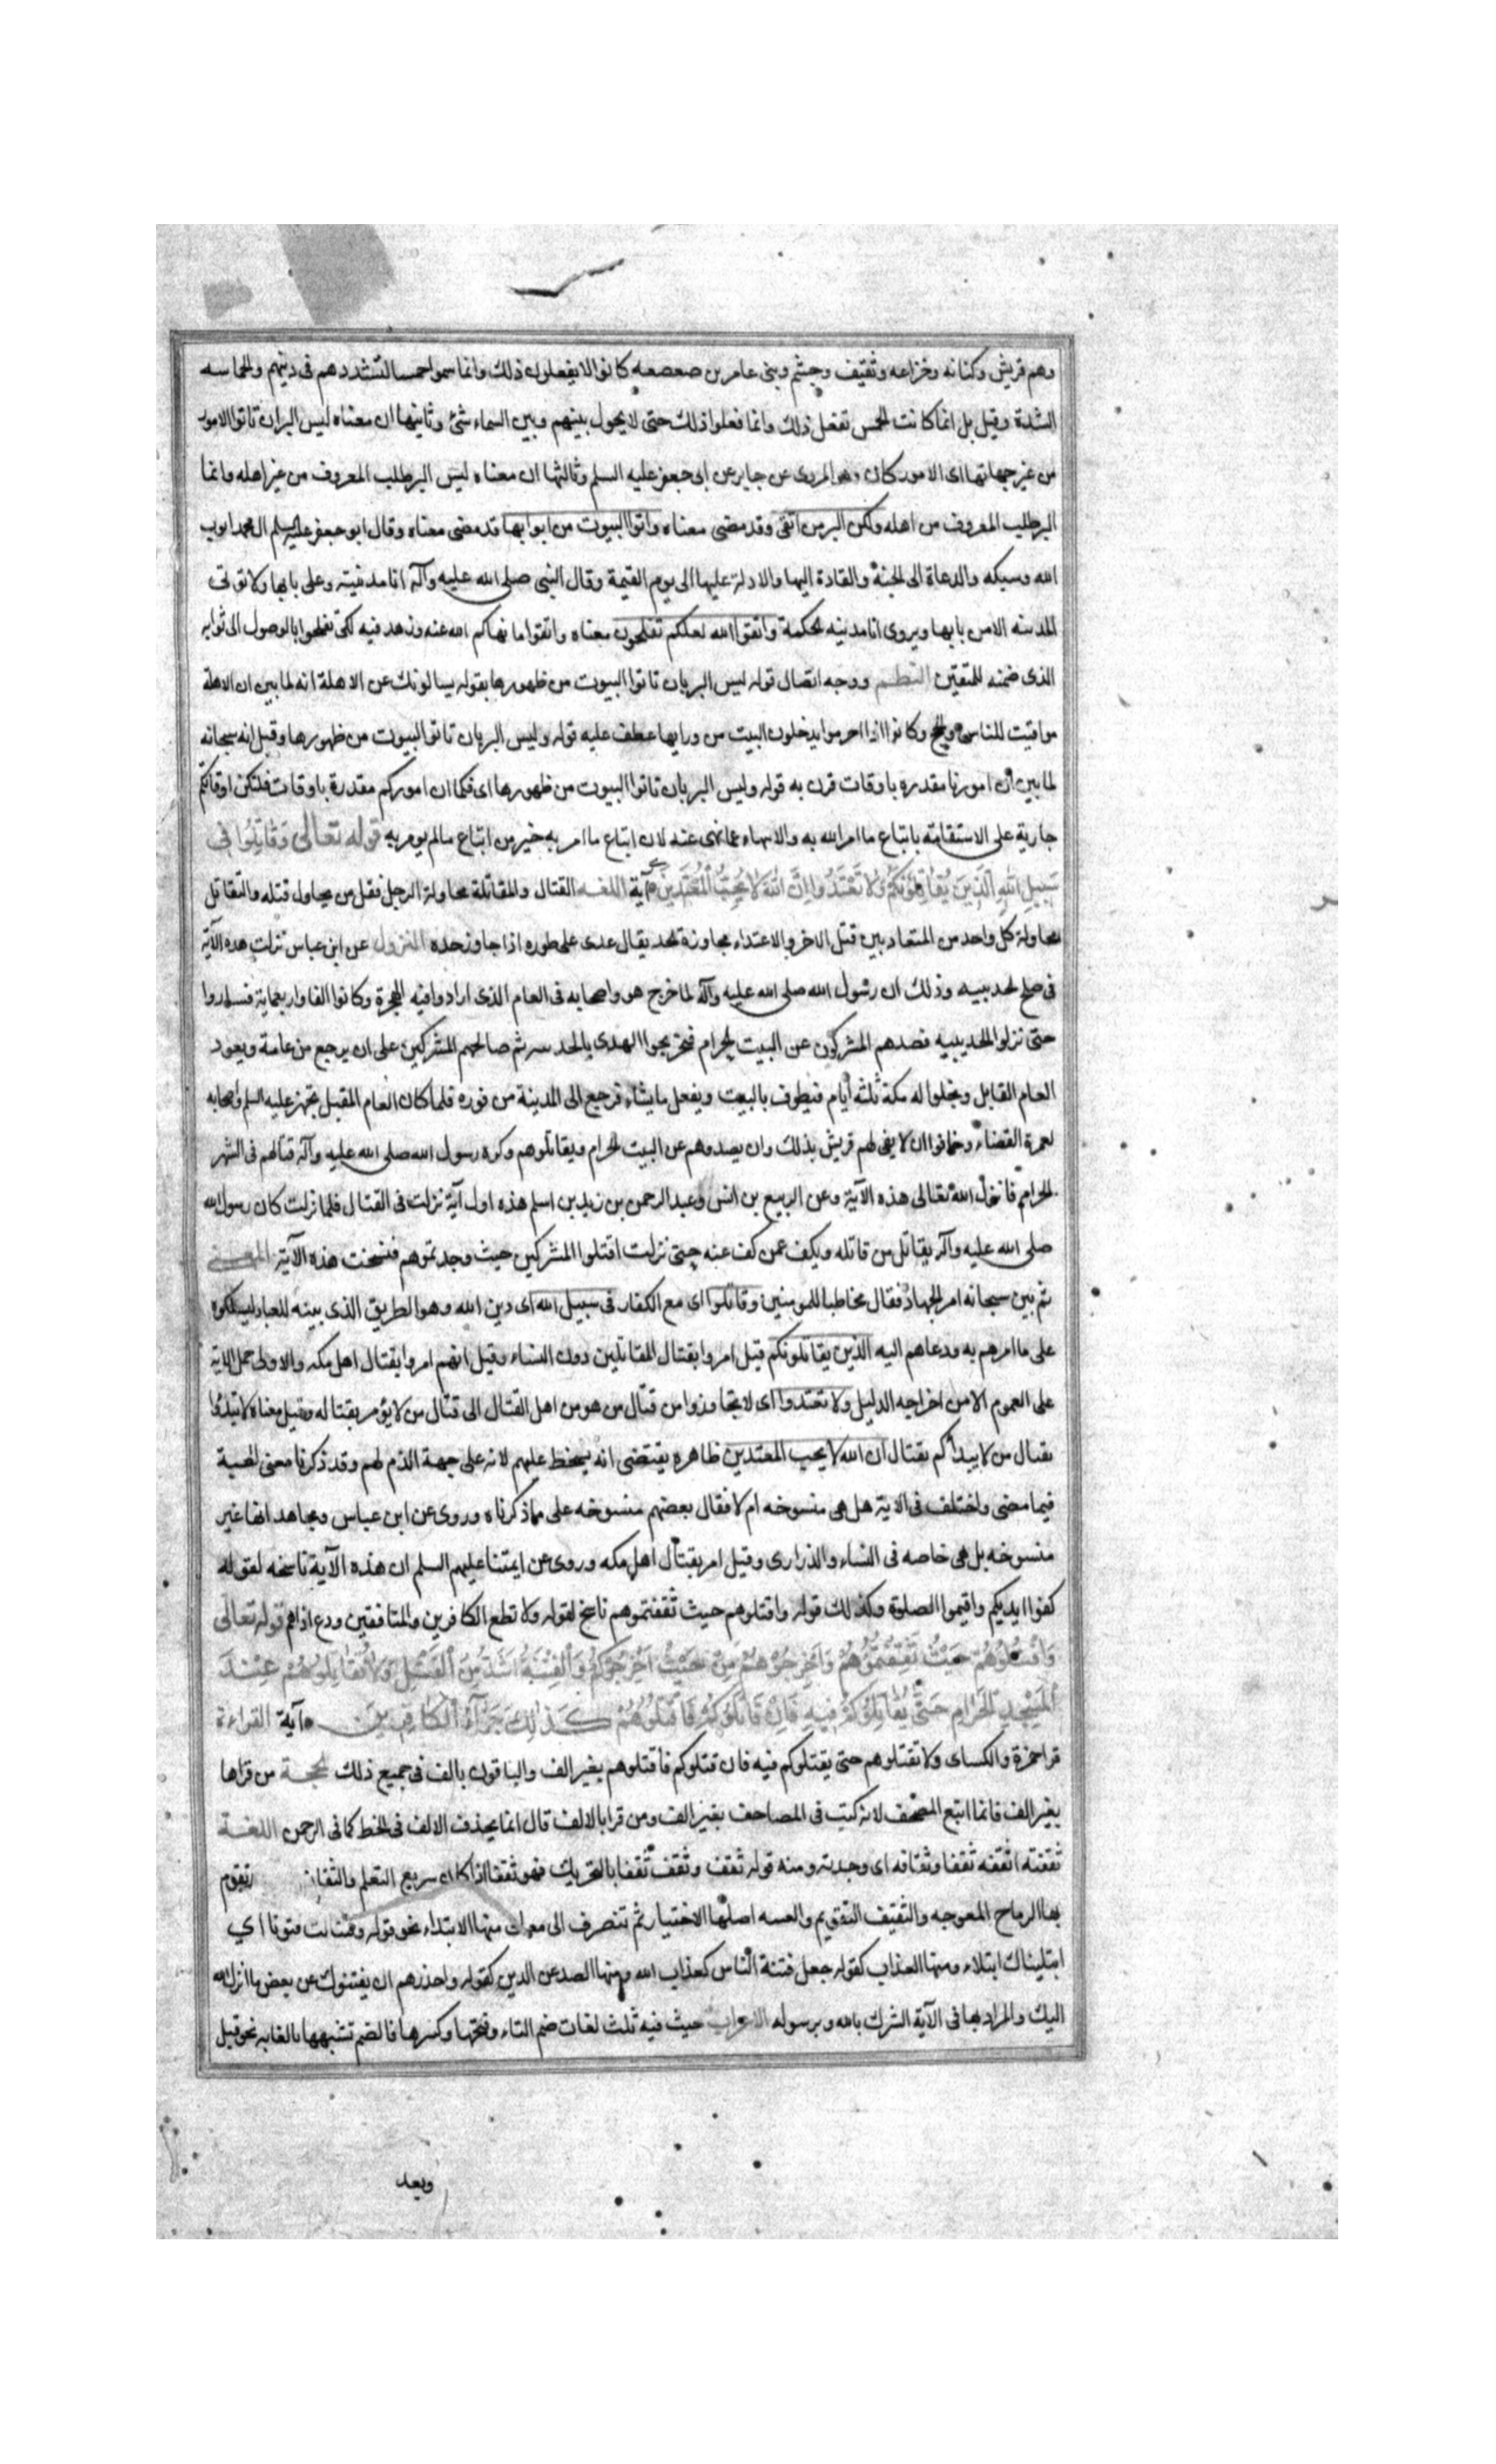 وهم قريش وكنانه وخزاعه وثقيف وجشم وبنى عامر بن صعصعه كانوا لا يفعلون ذلك وانما سموا حمسا لتشددهم فى دينهم والحماسه
الشدة وقيل بل انما كانت الحمس تفعل ذلك وانما فعلوا ذلك حتى لا يحول بينهم وبين السماء شئ وثانيها ان معناه ليس البر ان تاتوا الامور
من غير جهاتها اى الامور كان وهو المروى عن جابر عن ابى جعفر عليه السلم وثالثها ان معناه ليس البر طلب المعروف من غير اهله وانما
البر طلب المعروف من اهله ولكن البر من اتقى وقد مضى معناه واتوا البيوت من ابوابها قد مضى معناه وقال ابو جعفر عليه السلم ال محمد ابواب
الله وسبله والدعاة الى الجنة والقادة اليها والادلة عليها الى يوم القيمة وقال النبى صلى الله عليه وآله انا مدينة وعلى بابها ولا تؤتى
المدينه الا من بابها ويروى انا مدينه الحكمة واتقوا الله لعلكم تفلحون معناه واتقوا ما نهاكم الله عنه وزهد فيه لكى تفلحوا بالوصول الى ثوابه
الذى ضمنه للمتقين النظم ووجه اتصال قوله ليس البر بان تاتوا البيوت من ظهورها بقوله يسالونك عن الاهلة انه لما بين ان الاهلة
مواقيت للناس والحج وكانوا اذا احرموا يدخلون البيت من ورايها عطف عليه قوله وليس البر بان تاتوا البيوت من ظهورها وقيل انه سبحانه
لما بين ان امورنا مقدره باوقات قرن به قوله وليس البر بان تاتوا البيوت من ظهورها اى فكما ان اموركم مقدرة باوقات فلتكن اوقاتكم
جارية على الاستقامة باتباع ما امر الله به والانتهاء عما نهى عنه لان اتباع ما امر به خير من اتباع ما لم يومر به قوله تعالى وَقَاتِلُوا فِى
سَبِيلِ اللهِ الَّذِينَ يُقَاتِلُونَكُمْ وَلَا تَعْتَدُوا اِنَّ اللهَ لَا يُحِبُّ الْمُعْتَدِينَ آية اللغه القتال والمقاتلة محاولة الرجل فقل من يحاول قتله والتقاتل
محاولة كل واحد من المتعاديين قتل الاخر والاعتداء مجاوزة الحد يقال عدى على طوره اذا جاوز حده النزول عن ابن عباس نزلت هذه الآية
فى صلح الحديبيه وذلك ان رسول الله صلى الله عليه وآله لما خرج هو واصحابه فى العام الذى ارادوا فيه العمرة وكانوا الفا واربعماية فساروا
حتى نزلوا الحديبيه فصدهم المشركون عن البيت الحرام فنحروا الهدى بالحديبيه ثم صالحهم المشركين على ان يرجع من عامه ويعود
العام القابل ويخلوا له مكة ثلثه أيام فيطوف بالبيت ويفعل ما يشاء فرجع الى المدينة من فوره فلما كان العام المقبل تجهز عليه السلم واصحابه
لعمرة القضاء وخافوا ان لا يفى لهم قريش بذلك وان يصدوهم عن البيت الحرام ويقاتلوهم وكره رسول الله صلى الله عليه وآله قتالهم فى الشهر
الحرام فانزل الله تعالى هذه الآية وعن الربيع بن انس وعبد الرحمن بن زيد بن اسلم هذه اول آية نزلت فى القتال فلما نزلت كان رسول الله
صلى الله عليه وآله يقاتل من قاتله ويكف عمن كف عنه حتى نزلت اقتلوا المشركين حيث وجدتموهم فنسخت هذه الآية المعنى
ثم بين سبحانه امر الجهاد فقال مخاطبا للمومنين وقاتلوا اى مع الكفار فى سبيل الله اى دين الله وهو الطريق الذى بينه للعباد ليسلكوه
على ما امرهم به ودعاهم اليه الذين يقاتلونكم قيل امروا بقتال المقاتلين دون النساء وقيل انهم امروا بقتال اهل مكه والاولى حمل الاية
على العموم الا من اخرجه الدليل ولا تعتدوا اى لا تجاوزوا من قتال من هو من اهل القتال الى قتال من لا يؤمر بقتاله وقيل معناه لا تبتدؤا
بقتال من لا يبدأكم بقتال ان الله لا يحب المعتدين ظاهره يقتضى انه يسخط عليهم لانه على جهة الذم لهم وقد ذكرنا معنى المحبة
فيما مضى واختلف فى الاية هل هى منسوخه ام لا فقال بعضهم منسوخه على ما ذكرناه وروى عن ابن عباس ومجاهد انها غير
منسوخه بل هى خاصه فى النساء والذرارى وقيل امر بقتال اهل مكه وروى عن ايمتنا عليهم السلم ان هذه الآية ناسخه لقوله
كفوا ايديكم واقيموا الصلوة وكذلك قوله واقتلوهم حيث ثقفتموهم ناسخ لقوله ولا تطع الكافرين والمنافقين ودع اذاهم قوله تعالى
وَاقْتُلُوهُمْ حَيْثُ ثَقِفْتُمُوهُمْ وَاَخْرِجُوهُمْ مِنْ حَيْثُ اَخْرَجُوكُمْ وَالْفِتْنَةُ اَشَدُّ مِنَ الْقَتْلِ وَلَا تُقَاتِلُوهُمْ عِنْدَ
الْمَسْجِدِ الْحَرَامِ حَتَّى يُقَاتِلُوكُمْ فِيهِ فَاِنْ قَاتَلُوكُمْ فَاقْتُلُوهُمْ كَذَلِكَ جَزَآءُ الْكَافِرِينَ آية القراءة
قرا حمزة والكساى ولا تقتلوهم حتى يقتلوكم فيه فان قتلوكم فاقتلوهم بغير الف والباقون بالف فى جميع ذلك الحجة من قراها
بغير الف فانما اتبع المصحف لانه كتب فى المصاحف بغير الف ومن قرا بالالف قال انما يحذف الالف فى الخط كما فى الرحمن اللغة
ثقفته اثقفه ثقفا وثقافه اى وجدته ومنه قوله ثقف وثقف ثقفا بالتحريك فهو ثقف اذا كان سريع التعلم والثقاف تقوم
بها الرماح المعوجه والثقيف التقويم والفتنه اصلها الاختبار ثم تنصرف الى معان منها الابتداء نحو قوله وفتناك فتونا اي
ابتليناك ابتلاء ومنها العذاب كقوله جعل فتنة الناس كعذاب الله ومنها الصد عن الدين كقوله واحذرهم ان يفتنوك عن بعض ما انزل الله
اليك والمراد بها فى الآية الشرك بالله وبرسوله الاعراب حيث فيه ثلث لغات ضم الثاء وفتحها وكسرها فالضم تشبهها بالغايه نحو قبل
وبعد